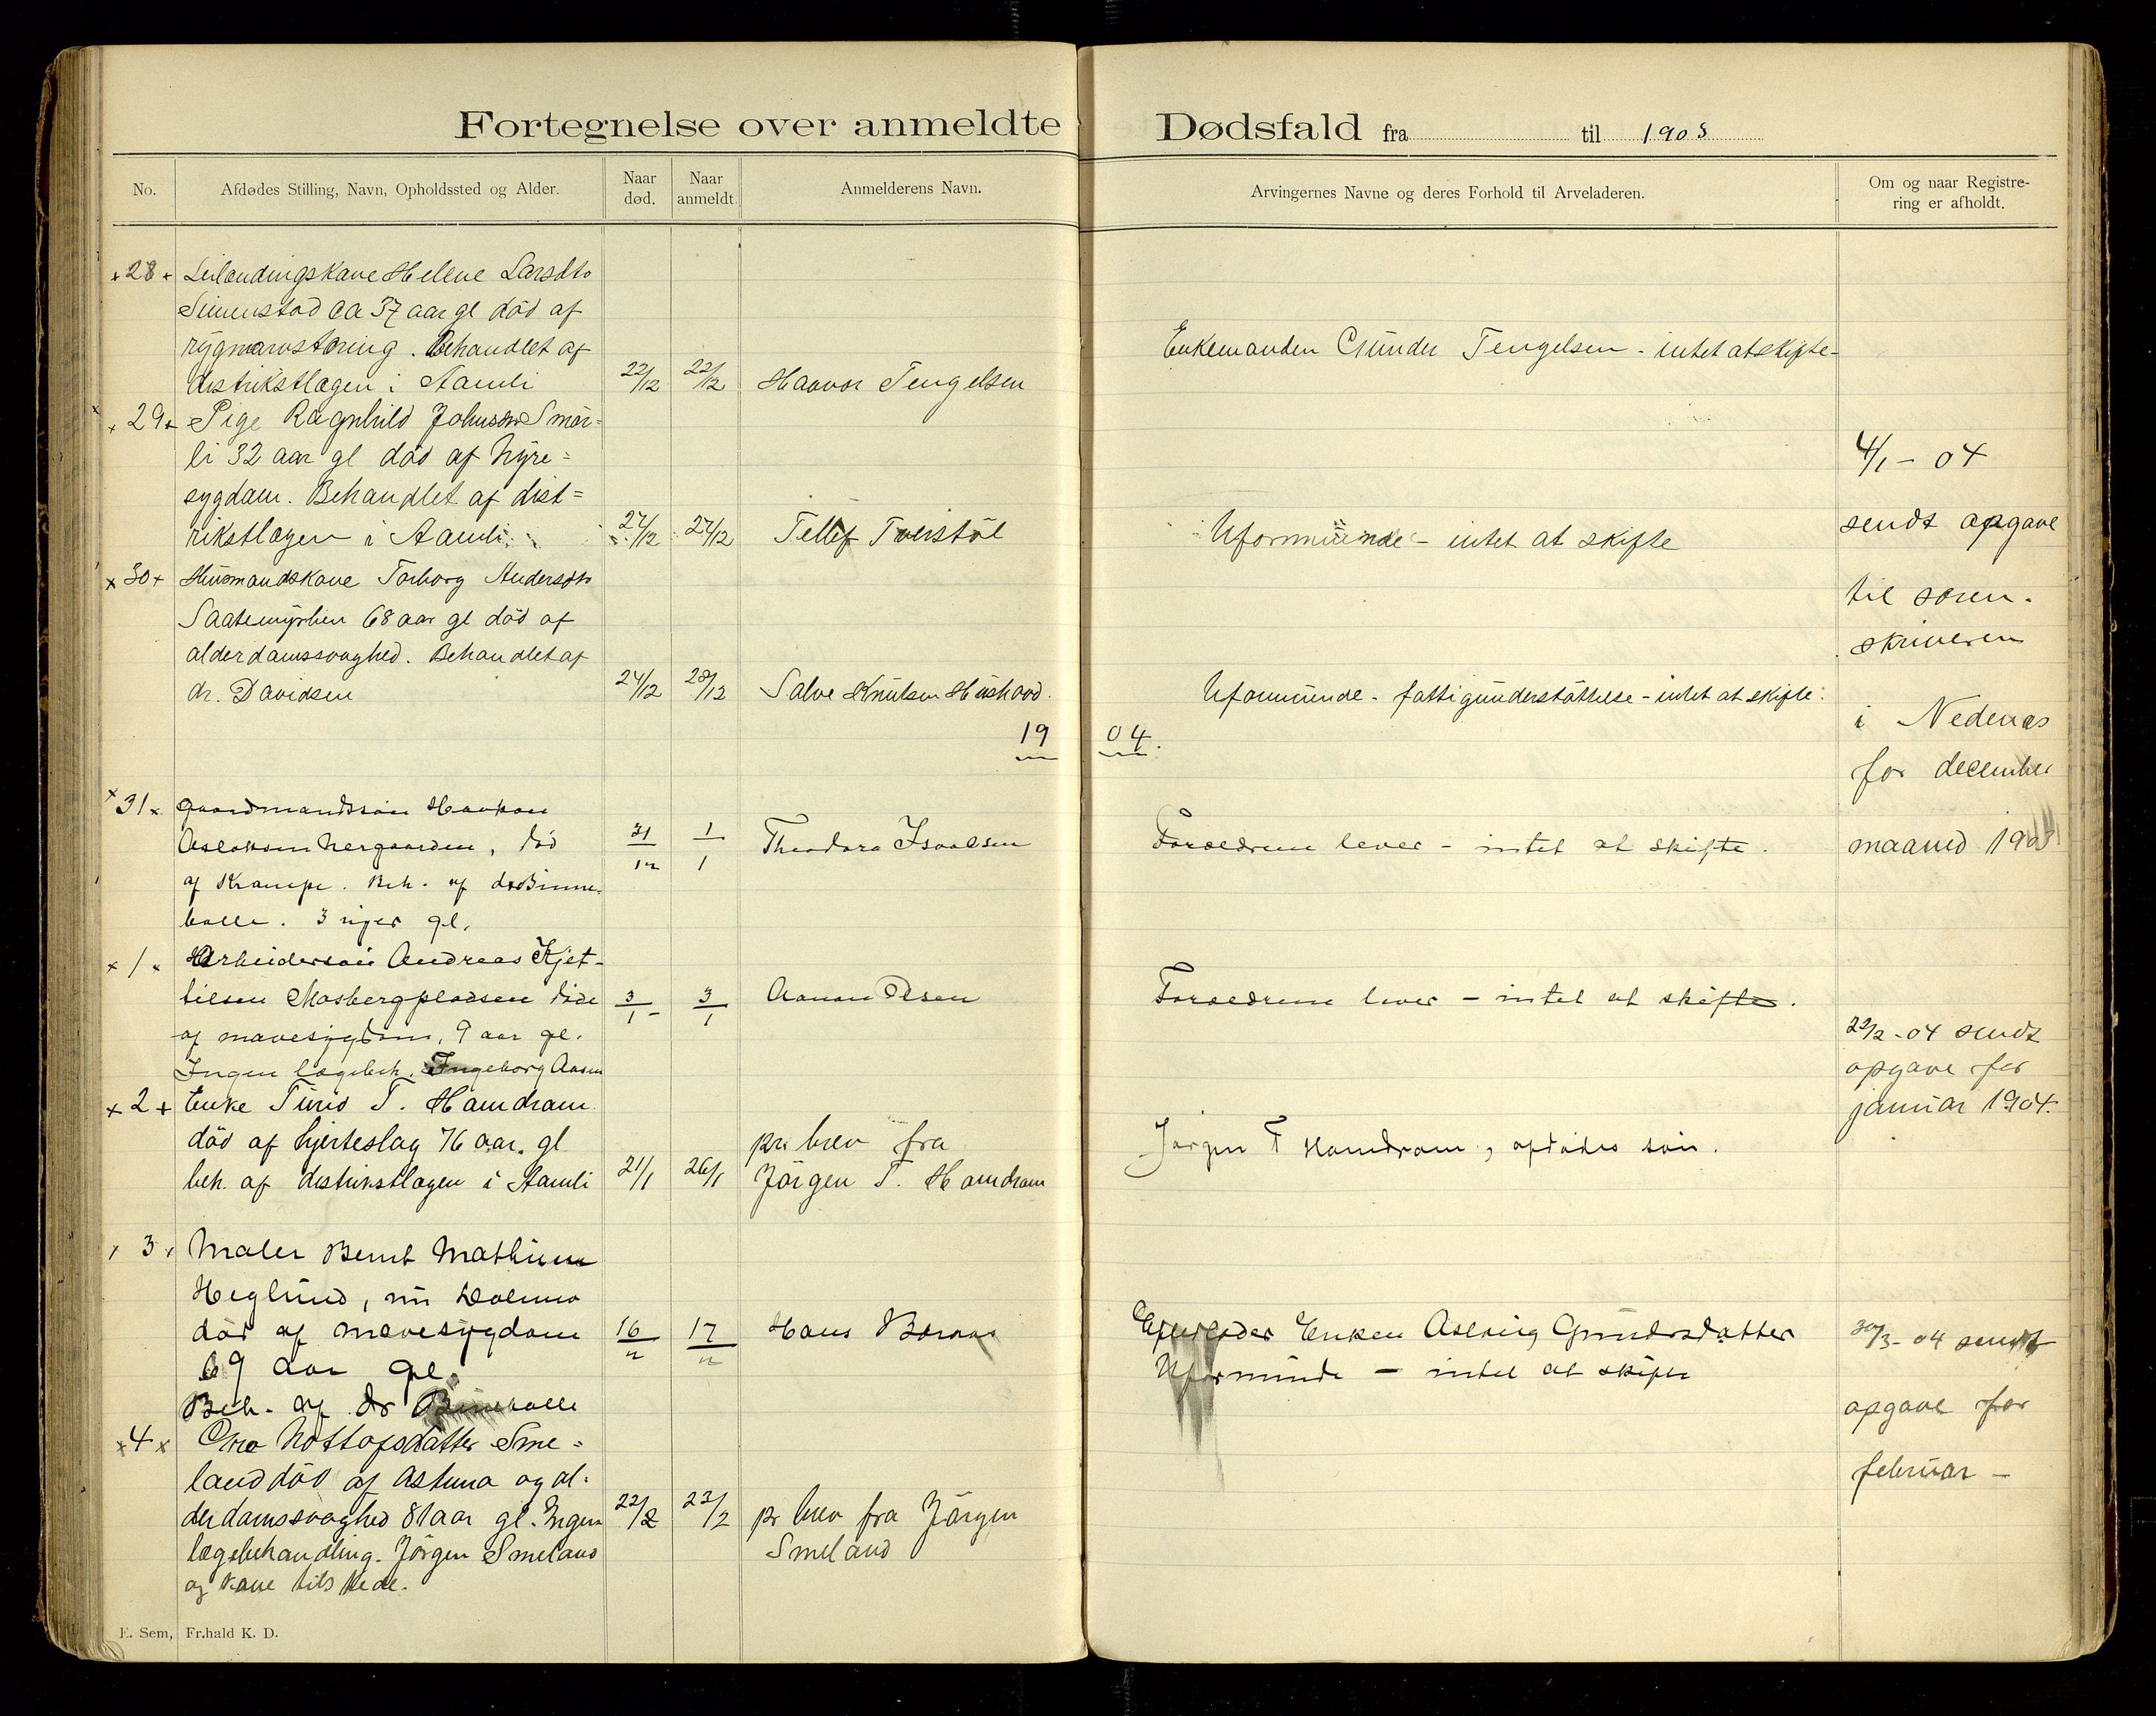 Fortegnelse over anmeldte Dødsfald fra til 1903
No.
Afdødes Stilling, Navn, Opholdssted og Alder.
Naar død.
Naar anmeldt
Anmelderens Navn.
Arvingernes Navne og deres Forhold til Arveladeren.
Om og naar Registre-
ring er afholdt.
+28+ Leilændingskane Helene Larsdtr
Simenstad ca 37 aar gl død af
rygmarvstæring. Behandlet af
distrikstlægen i Aamli 22/12 22/12 Haavor Tengelsen
Enkemanden Gunder Tengelsen - intet at skifte -
+29+ Pige Ragnhild Johnsdtr Smør=
li 32 aar gl død af Nyre=
sygdam. Behandlet af dist=
rikstlægen i Aamli. 24/12 27/12 Tellef Tveistøl
Uformuende - intet at skifte
4/1 - 04
sendt opgave
til soren-
skriveren
i Nedenæs
for december
maaned 1903
+30+ Husmandskone Torborg Andersdtr
Saatemyrlien 68 aar gl død af
alderdamssvaghed. Behandlet af
dr. Davidsen 24/12 28/12 Salve Knutsen Hushovd.
Uformuende - fattigunderstøttelse - intet at skifte.
1904.
+31+ Gaardmandssøn Haakon
Aslaksen Nergaarden, død
af Krampe. Beh. af dr Binne-
balle. 3 uger gl.
31/12 1/1 Theodora Isvalsen
Forældrene lever - intet at skifte.
+1+ Arbeidersøn Andreas Kjet-
tilsen Mosbergpladsen døde
af mavesygdom, 9 aar gl.
Ingen lægebeh. Ingeborg Aasen
3/1 3/1 Aanon Olsen
Forældrene lever - intet at skifte.
22/2 - 04 sendt
opgave for
januar 1904.
+2+ Enke Turid T. Hamdram
død af hjerteslag 76 aar. gl
beh. af distrikstlægen i Aamli 21/1 26/1
pr. brev fra
Jörgen T. Hamdram
Jørgen T Hamdram, afdødes søn.
3 Maler Bernt Mathisen
Heglund, nu
død af mavesygdom
69 aar gl.
Beh. af dr Binneballe
16/2 17/2 Hans
Efterlader Enken Aslaug Gundersdatter
Uformuende - intet at skifte
30/3 - 04 sendt
opgave for
februar -
+4+ Gro Nottofsdatter Sme=
land død af Astma og al-
derdamssvaghed 81 aar gl. Ingen
lægebehandling. Jörgen Smeland
og kone tilstede.
22/2 23/2 pr brev fra Jörgen
Smeland
E. Sem, Fr.hald K. D.